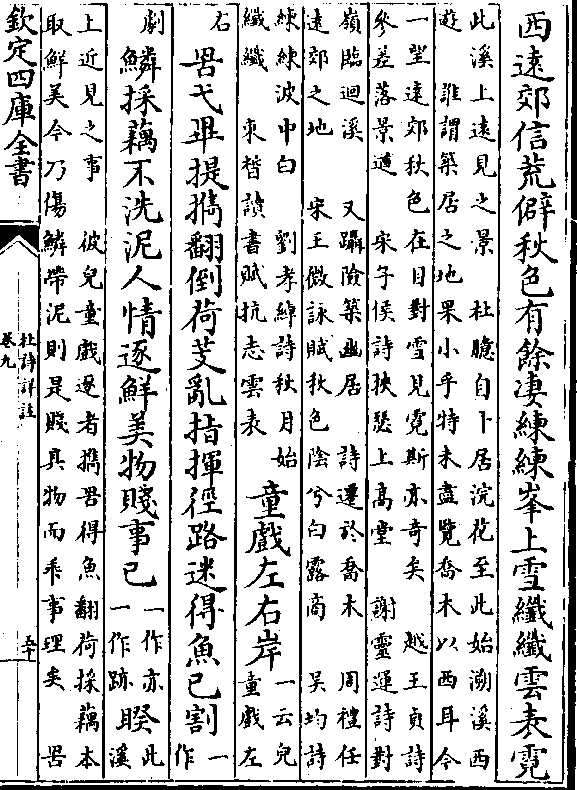 西遠郊信荒僻秋色有餘凄練練峯上雪纖纖雲表霓
此溪上遠見之景 杜臆自卜居浣花至此始溯溪西
遊 誰謂築居之地果小乎特未盡覽喬木以西耳今
一望遠郊秋色在目對雪見霓斯亦奇矣 越王貞詩
參差落景遒 宋子侯詩挾瑟上高堂 謝靈運詩對
嶺臨迴溪 又躡險築幽居 詩遷於喬木 周禮任
遠郊之地 宋玉微詠賦秋色陰兮白露商 吳均詩
練練波中白 劉孝綽詩秋月始
纖纖 束晳讀書賦抗志雲表
童戲左右岸
一云兒
童戲左
右
罟弋畢提攜翻倒荷芰亂指揮徑路迷得魚已割
一
作
劇
鱗採藕不洗泥人情逐鮮美物賤事已
一作亦
一作跡
睽
此
溪
上近見之事 彼兒童戲邊者攜罟得魚翻荷採藕本
取鮮美今乃傷鱗帶泥則是賤其物而乖事理矣 罟
欽定四庫全書
杜詩詳註
卷九
五十